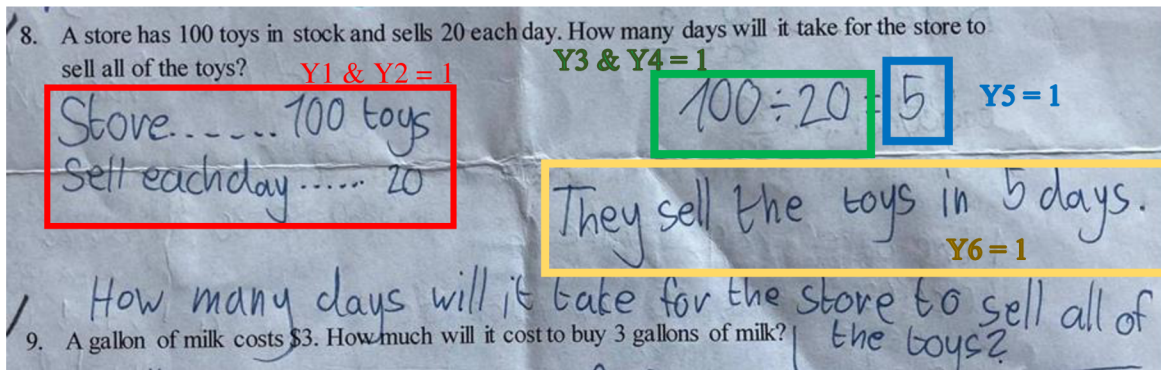 8. A store has 100 toys in stock and sells 20 each day. How many days will it take for the store to
sell all of the toys?
Y1 & Y2 = 1
Y3 & Y4 = 1
Store...... 100 toys
Sell each day...... 20
100÷20=5
Y5 = 1
They sell the toys in 5 days.
Y6 = 1
How many days will it take for the store to sell all of
the toys?
9. A gallon of milk costs $3. How much will it cost to buy 3 gallons of milk?